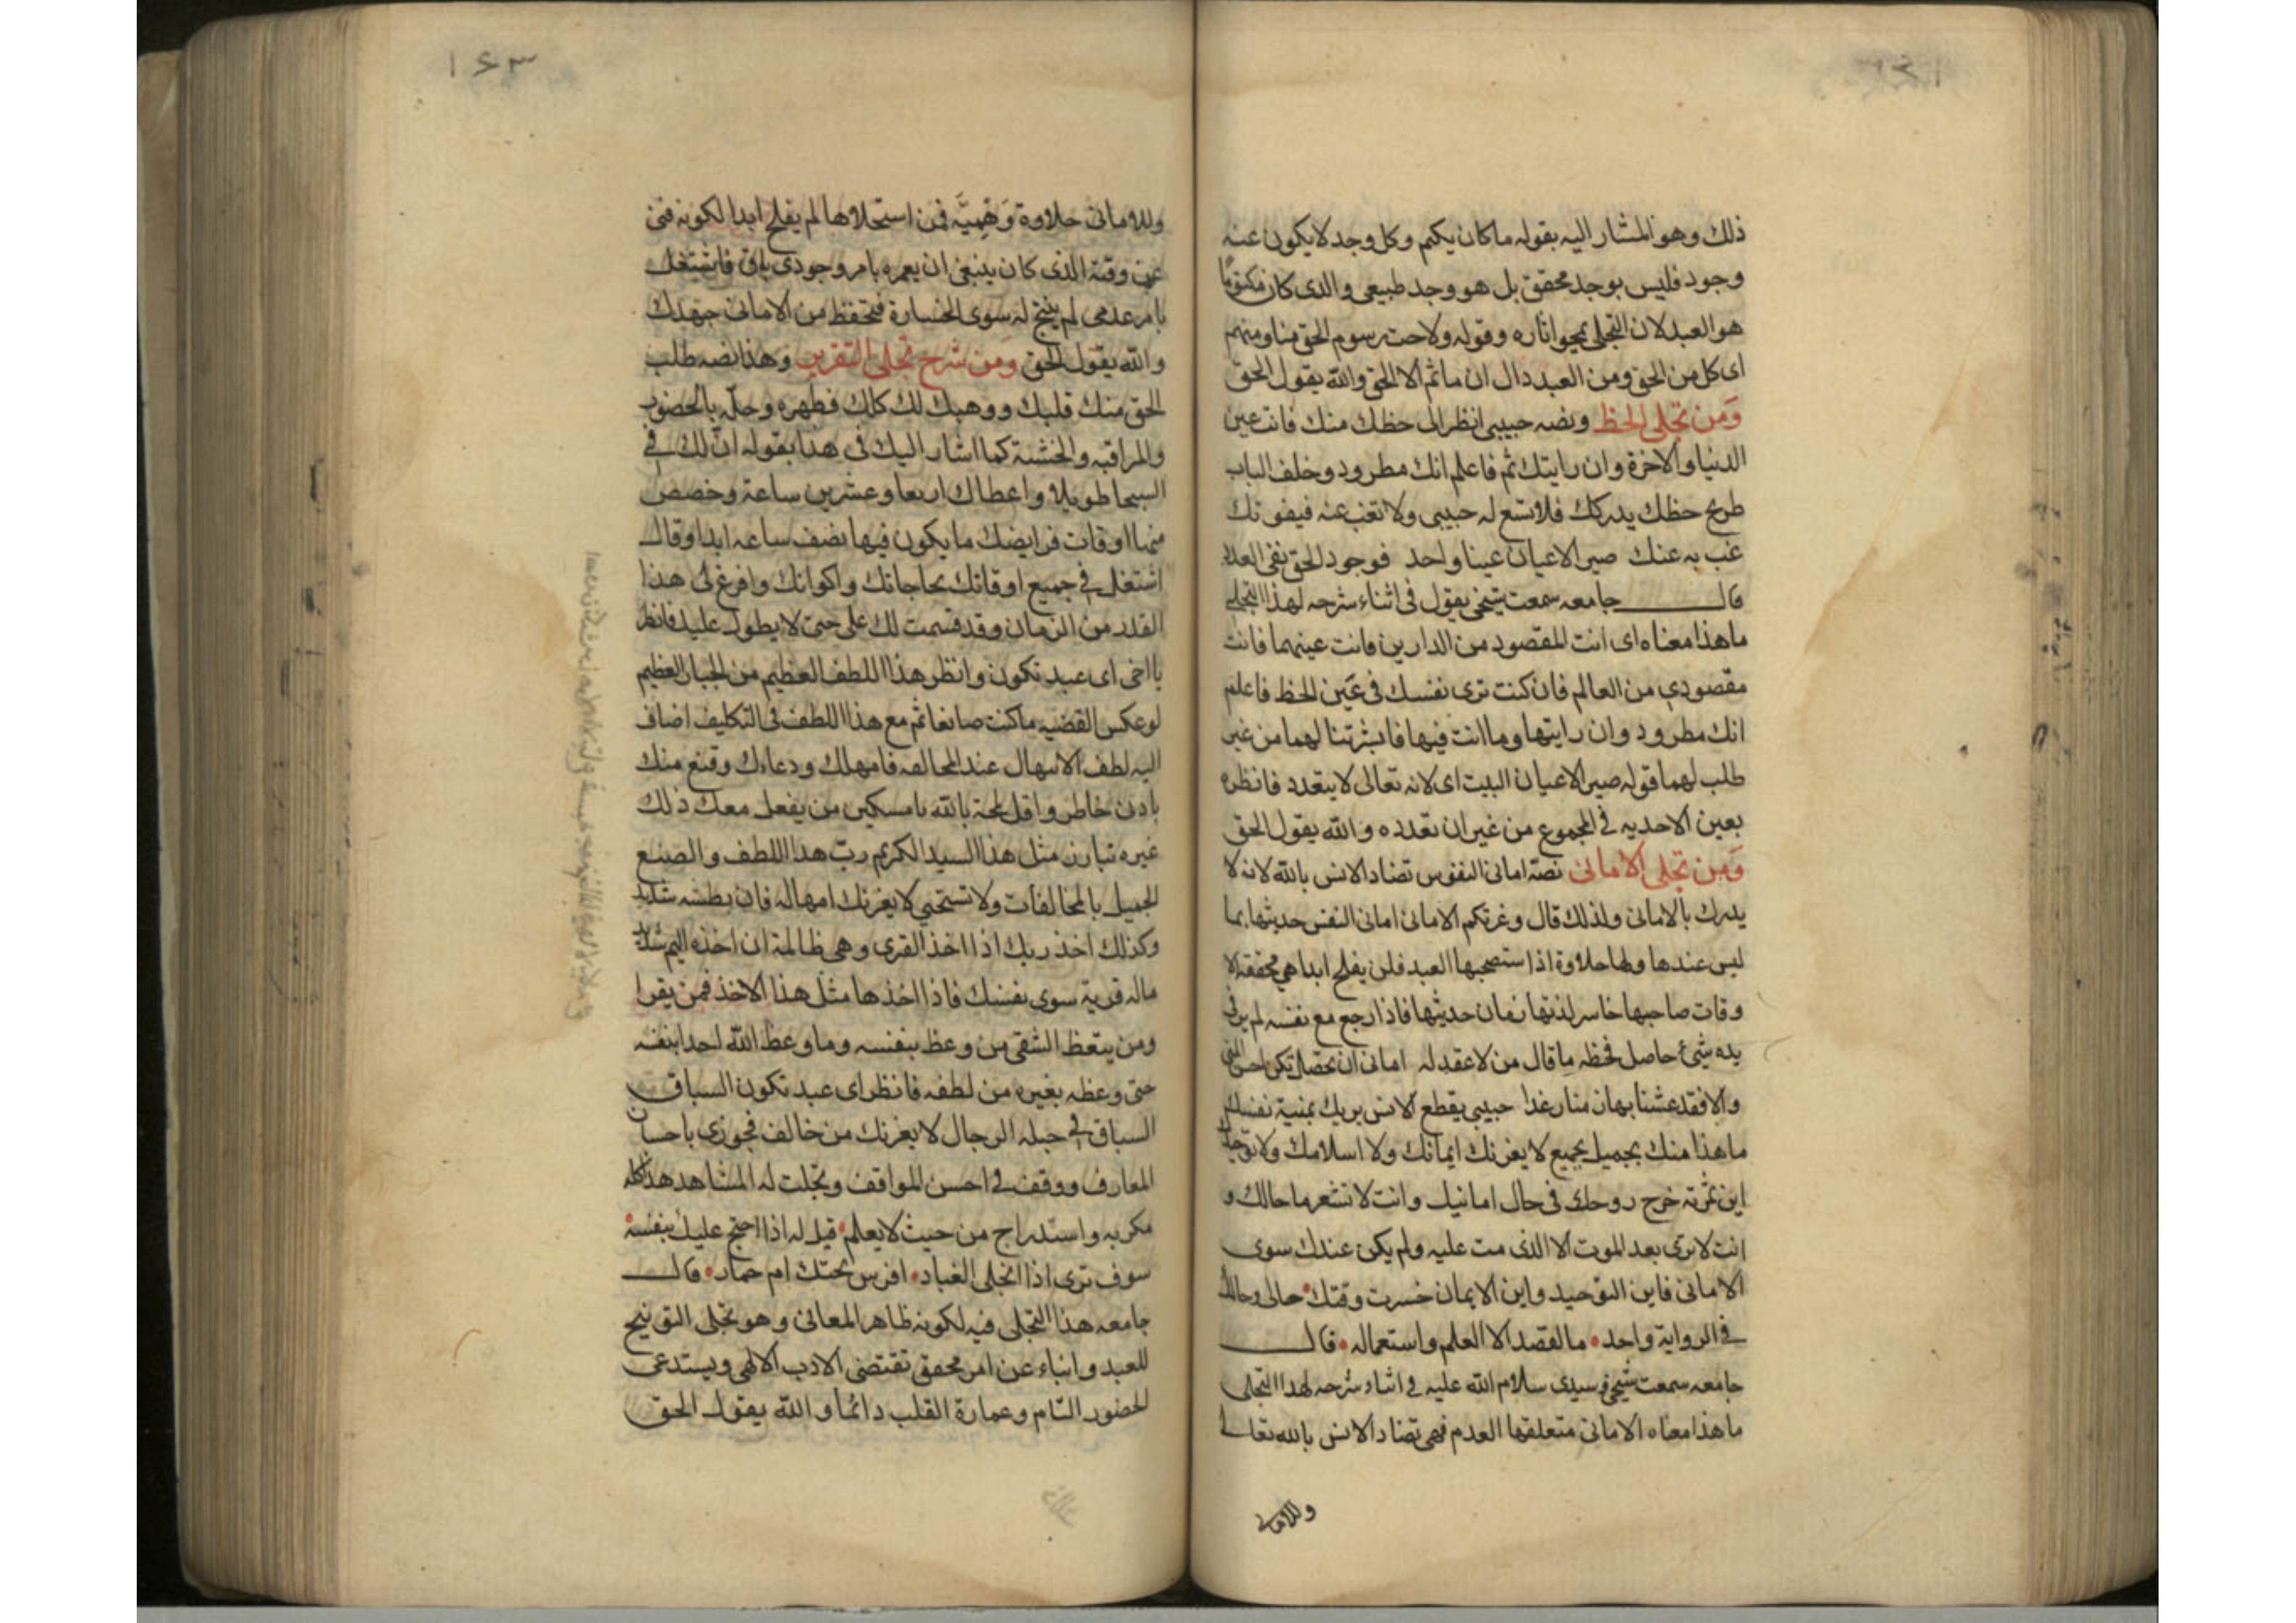 ذلك وهو المشار اليه بقوله ما كان يكتم وكل وجد لا يكون عنه
وجود فليس بوجد محقق بل هو وجد طبيعي والذى كان مكتوما
هو العبد لان التجلى يمحو اثاره وقوله ولاحت رسوم الحق منا ومنهم
اى كل من الحق ومن العبد دال ان ما ثم الا الحق والله يقول الحق
ومن تجلى الحظ ونصه حبيبى انظر الى حظك منك فانت عين
الدنيا والاخرة وان رايتك ثم فاعلم انك مطرود وخلف الباب
طريح حظك يدركك فلا تسع له حبيبى ولا تغب عنه فيفوتك
غب به عنك صير الاعيان عينا واحد فوجود الحق نفى العدد
قال جامعه سمعت شيخى يقول فى اثناء شرحه لهذا التجلى
ما هذا معناه اى انت المقصود من الدارين فانت عينهما فانت
مقصودي من العالم فان كنت ترى نفسك فى عين الحظ فاعلم
انك مطرود وان رايتها وما انت فيها فابشرتنا لهما من غير
طلب لهما قوله صير الاعيان البيت اى لانه تعالى لا يتعدد فانظره
بعين الاحديه فى المجموع من غير ان تعدده والله يقول الحق
ومن تجلى الامانى نصه امانى النفوس تضاد الانس بالله لانه لا
يدرك بالامانى ولذلك قال وغرتكم الامانى امانى النفس حديثها بما
ليس عندها ولها حلاوة اذا استصحبها العبد فلن يفلح ابدا هى ممحقة الا
وقات صاحبها خاسر لذتها زمان حديثها فاذا رجع مع نفسه لم ير فى
يده شئ حاصل فحظه ما قال من لا عقد له امانى ان تحصل تكن احسن المنى
والا فقد عشنا بها زمنا رغدا حبيبى يقطع الانس بربك بمنية نفسك
ما هذا منك بجميل لا يغرنك ايمانك ولا اسلامك ولا توحيدك
اين ثمرته خرج روحك فى حال امانيك وانت لا تشعر ما حالك و
انت لا ترى بعد الموت الا الذى مت عليه ولم يكن عندك سوى
الامانى فاين التوحيد واين الايمان خسرت وقتك حالى وحالك
فى الرواية واحد ما القصد الا العلم واستعماله قال
جامعه سمعت شيخى وسيدى سلام الله عليه فى اثناء شرحه لهذا التجلى
ما هذا معناه الامانى متعلقها العدم فهى تضاد الانس بالله تعالى
وللامانى
١٤٣
وللامانى حلاوة وهمية فمن استحلاها لم يفلح ابدا لكونه فنى
عن وقته الذى كان ينبغى ان يعمره بامر وجودى باق فاشتغل
بامر عدمى لم ينتج له سوى الخسارة فتحفظ من الامانى جهدك
والله يقول الحق ومن شرح تجلى التقرير وهذا نصه طلب
الحق منك قلبك ووهبك لك كلك فطهره وحله بالحضور
والمراقبه والخشية كما اشار اليك فى هذا بقوله ان لك فى
السبحا طويلا واعطاك اربعا وعشرين ساعة وخصص
منها اوقات فرايضك ما يكون فيها نصف ساعه ابدا وقال
اشتغل فى جميع اوقاتك بحاجاتك واكوانك وافرغ لى هذا
القدر من الزمان وقد قسمت لك على حتى لا يطول عليك فانظر
يا اخى اى عبد تكون وانظر هذا اللطف العظيم من الجبار العظيم
لو عكس القضيه ما كنت صانعا ثم مع هذا اللطف فى التكليف اضاف
اليه لطف الامهال عند المخالفه فامهلك ودعاك وقنع منك
بادنى خاطر واقل لمحة بالله يا مسكين من يفعل معك ذلك
غيره تبارز مثل هذا السيد الكريم رب هذا اللطف والصنع
الجميل بالمخالفات ولا تستحى لا يغرنك امهاله فان بطشه شديد
وكذلك اخذ ربك اذا اخذ القرى وهى ظالمة ان اخذه اليم شديد
ماله قرية سوى نفسك فاذا اخذها مثل هذا الاخذ فمن يقرا
ومن يتعظ الشقى من وعظ بنفسه وما وعظ الله احدا بنفسه
حتى وعظه بغيره من لطفه فانظر اى عبد تكون السباق
السباق فى حبله الرجال لا يغرنك من خالف فجوزى باحسان
المعارف ووقف فى احسن المواقف وتجلت له المشاهد هذا كله
مكر به واستدراج من حيث لا يعلم قيل له اذا احتج عليك بنفسه
سوف ترى اذا انجلى الغباد افرس تحتك ام حمار قال
جامعه هذا التجلى فيه لكونه ظاهر المعانى وهو تجلى التوبيخ
للعبد وانباء عن امر محقق تقتضى الادب الالهى ويستدعى
الحضور التام وعمارة القلب دائما والله يقول الحق